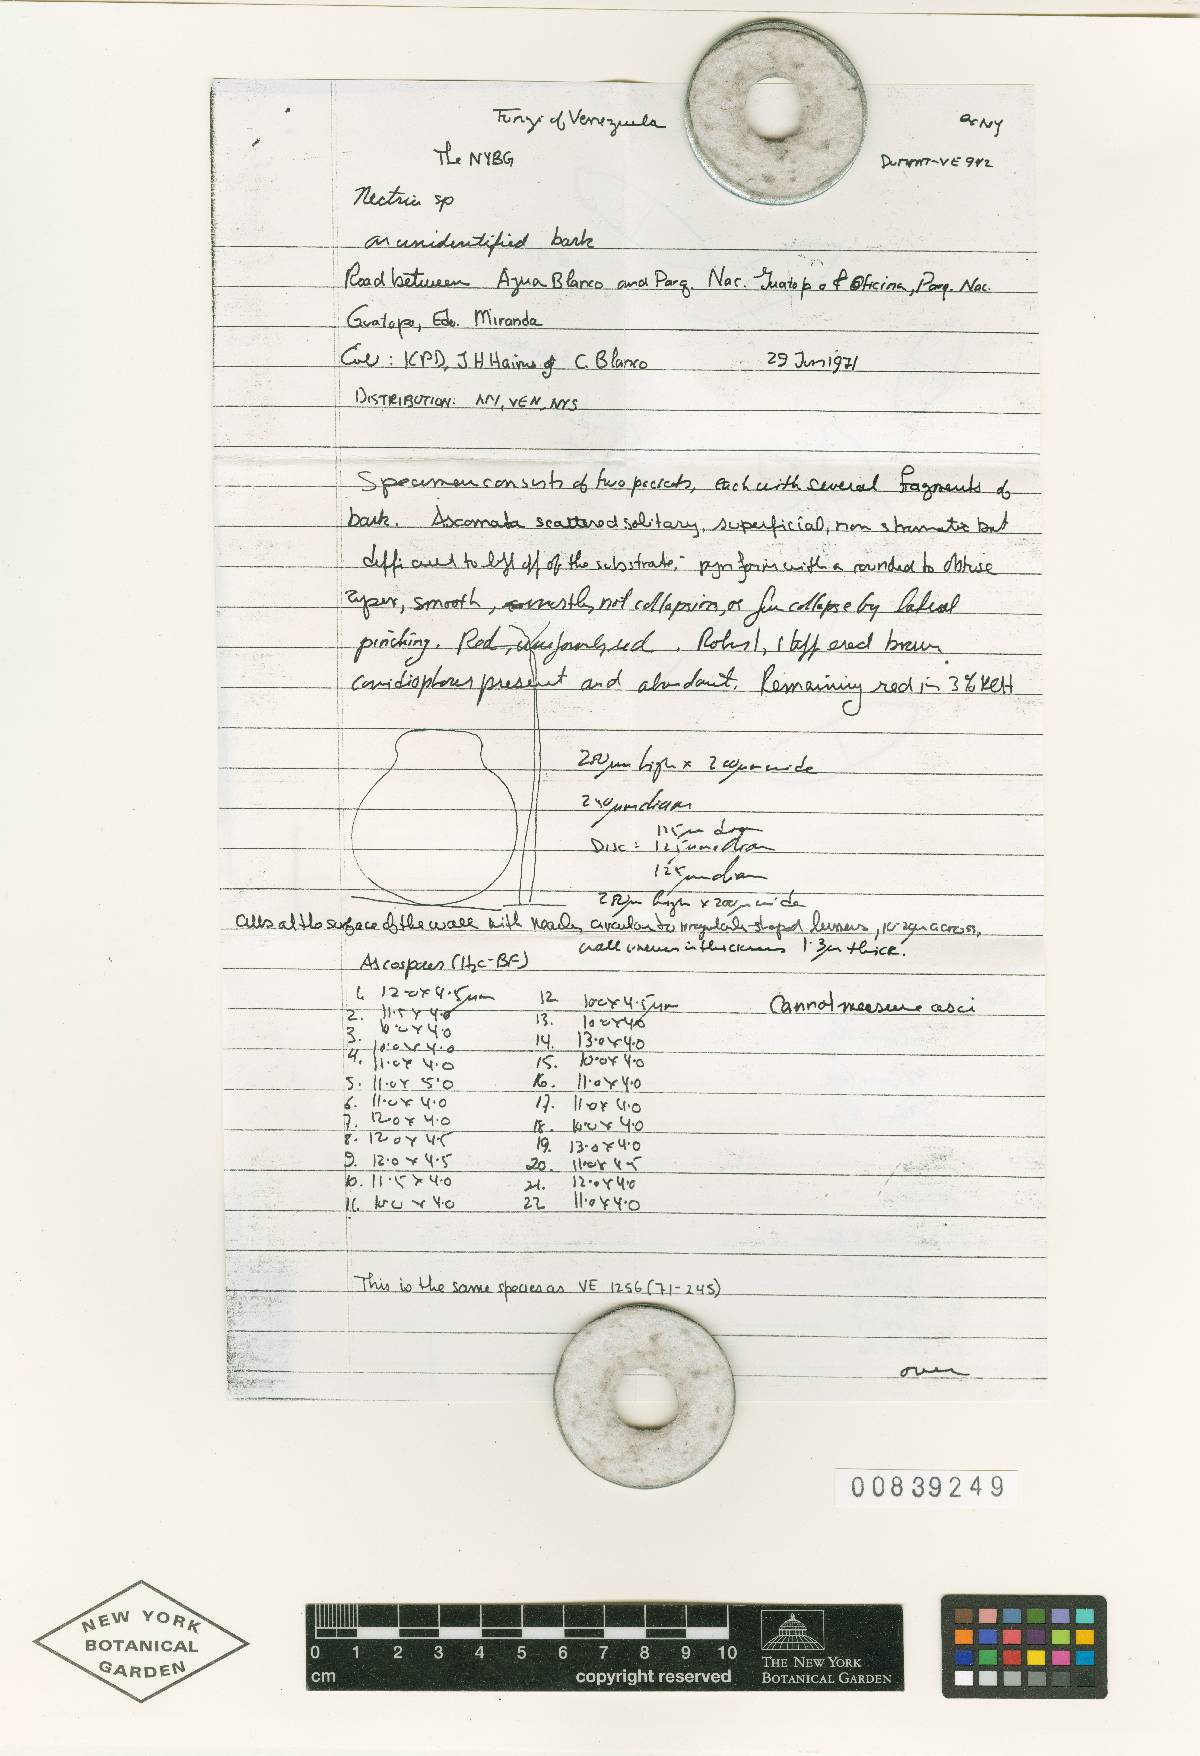 Fungi of Venezuela
ex NY
The NYBG
DUMONT-VE 942
Nectria sp
on unidentified bark
Road between Agua Blanco and Parq. Nac. Guatopo & Oficina, Parq. Nac.
Guatopo, Edo. Miranda
Col: KPD, JH Haines & C. Blanco 29 Jun 1971
DISTRIBUTION: NY, VEN, NYS
Specimen consists of two packets, each with several fragments of
bark. Ascomata scattered solitary, superficial, non stromatic but
difficult to lift off of the substrate; pyriform with a rounded to obtuse
apex, smooth, mostly not collapsing, or few collapse by lateral
pinching. Red, uniformly red. Robust, stiff and brown
conidiophores present and abundant. Remaining red in 3% KOH
250µm high x 200µm wide
240µm diam
125µm diam
Disc: 125µm diam
125µm diam
250µm high x 200µm wide
Cells at the surface of the wall with nearly circular to irregularly-shaped lumens, 10-2µm across,
wall uneven in thickness 1-3µm thick.
Ascospores (H2O-BF)
1. 12.0 x 4.5µm 12 10.0 x 4.5µm Cannot measure asci
2. 11.5 x 4.0 13. 10.0 x 4.0
3. 10.0 x 4.0 14. 13.0 x 4.0
10.0 x 4.0
4. 11.0 x 4.0 15. 10.0 x 4.0
5. 11.0 x 5.0 16. 11.0 x 4.0
6. 11.0 x 4.0 17. 11.0 x 4.0
7. 12.0 x 4.0 18. 10.0 x 4.0
8. 12.0 x 4.5 19. 13.0 x 4.0
9. 12.0 x 4.5 20. 11.0 x 4.5
10. 11.5 x 4.0 21. 12.0 x 4.0
11. 10.0 x 4.0 22 11.0 x 4.0
This is the same species as VE 1256 (71-245)
over
00839249
NEW YORK
BOTANICAL
GARDEN
0 1 2 3 4 5 6 7 8 9 10
cm copyright reserved
THE NEW YORK
BOTANICAL GARDEN